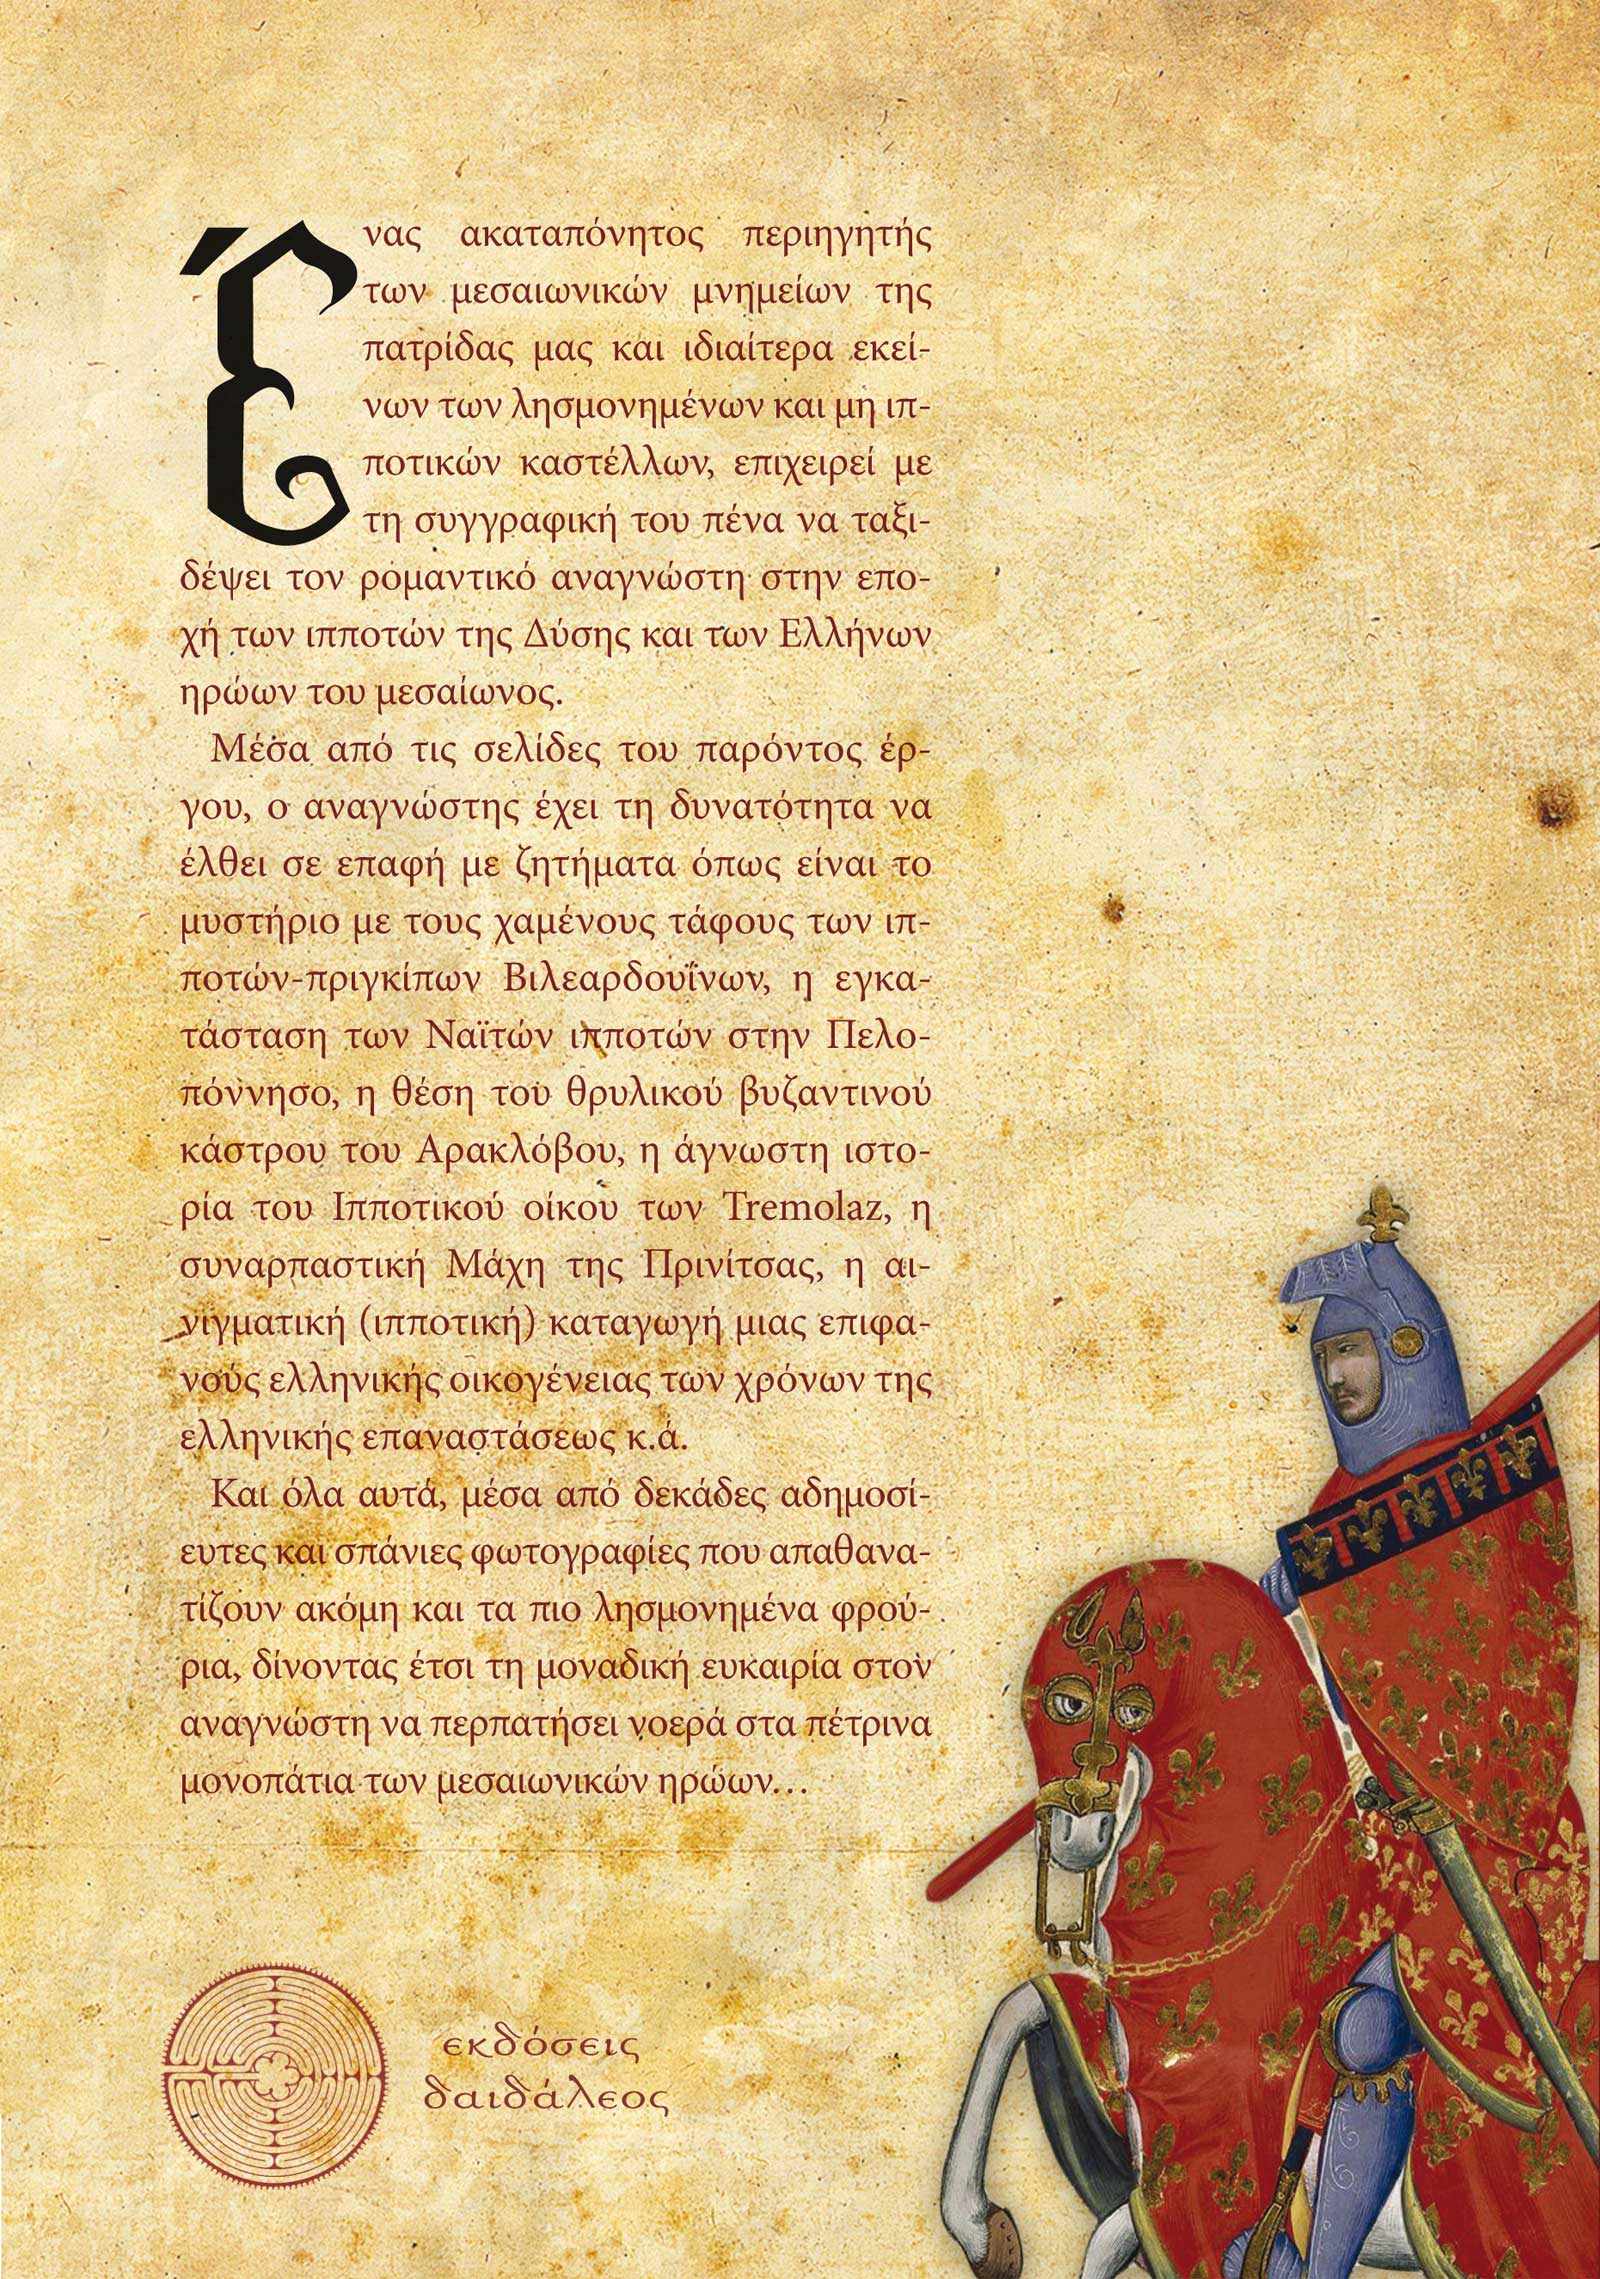 Ένας ακαταπόνητος περιηγητής
των μεσαιωνικών μνημείων της
πατρίδας μας και ιδιαίτερα εκεί-
νων των λησμονημένων και μη ιπ-
ποτικών καστέλλων, επιχειρεί με
τη συγγραφική του πένα να ταξι-
δέψει τον ρομαντικό αναγνώστη στην επο-
χή των ιπποτών της Δύσης και των Ελλήνων
ηρώων του μεσαίωνος.
Μέσα από τις σελίδες του παρόντος έρ-
γου, ο αναγνώστης έχει τη δυνατότητα να
έλθει σε επαφή με ζητήματα όπως είναι το
μυστήριο με τους χαμένους τάφους των ιπ-
ποτών-πριγκίπων Βιλεαρδουΐνων, η εγκα-
τάσταση των Ναϊτών ιπποτών στην Πελο-
πόννησο, η θέση του θρυλικού βυζαντινού
κάστρου του Αρακλόβου, η άγνωστη ιστο-
ρία του Ιπποτικού οίκου των Tremolaz, η
συναρπαστική Μάχη της Πρινίτσας, η αι-
νιγματική (ιπποτική) καταγωγή μιας επιφα-
νούς ελληνικής οικογένειας των χρόνων της
ελληνικής επαναστάσεως κ.ά.
Και όλα αυτά, μέσα από δεκάδες αδημοσί-
ευτες και σπάνιες φωτογραφίες που απαθανα-
τίζουν ακόμη και τα πιο λησμονημένα φρού-
ρια, δίνοντας έτσι τη μοναδική ευκαιρία στον
αναγνώστη να περπατήσει νοερά στα πέτρινα
μονοπάτια των μεσαιωνικών ηρώων…
εκδόσεις
δαιδάλεος